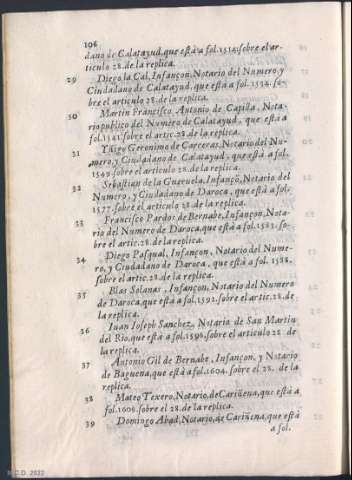 106
dano de Calatayud, que està a fol. 1514. sobre el ar-
ticulo 28. de la replica.
29 Diego la Cal, Infançon, Notario del Numero, y
Ciudadano de Calatayud, que està a fol. 1534. so-
bre el articulo 28. de la replica.
30 Martin Francisco, Antonio de Capilla, Nota-
rio publico del Numero de Calatayud, que està a
fol. 1541. sobre el artic. 28. de la replica.
31 Yñigo Geronimo de Carceras, Notario del Nu-
mero, y Ciudadano de Calatayud, que està a fol.
1549. sobre el articulo 28. de la replica.
32 Sebastian de la Gueruela, Infançõ, Notario del
Numero, y Ciudadano de Daroca, que està a fol.
1577. sobre el articulo 28. de la replica.
33 Francisco Pardos de Bernabe, Infançon, Nota-
rio del Numero de Daroca, que està a fol. 1583. so-
bre el artic. 28. de la replica.
34 Diego Pasqual, Infançon, Notario del Nume-
ro, y Ciudadano de Daroca, que està a fol. 1588.
sobre el artic. 28. de la replica.
35 Blas Solanas, Infançon, Notario del Numero
de Daroca, que està a fol. 1592. sobre el artic. 28. de
la replica.
36 Iuan Ioseph Sanchez, Notario de San Martin
del Rio, que està a fol. 1596. sobre el articulo 28. de
la replica.
37 Antonio Gil de Bernabe, Infançon, y Notario
de Baguena, que està a fol. 1604. sobre el 28. de la
replica.
38 Mateo Texero, Notario, de Cariñena, que està a
fol. 1606. sobre el 28. de la replica.
39 Domingo Abad, Notario, de Cariñena, que està
a fol.